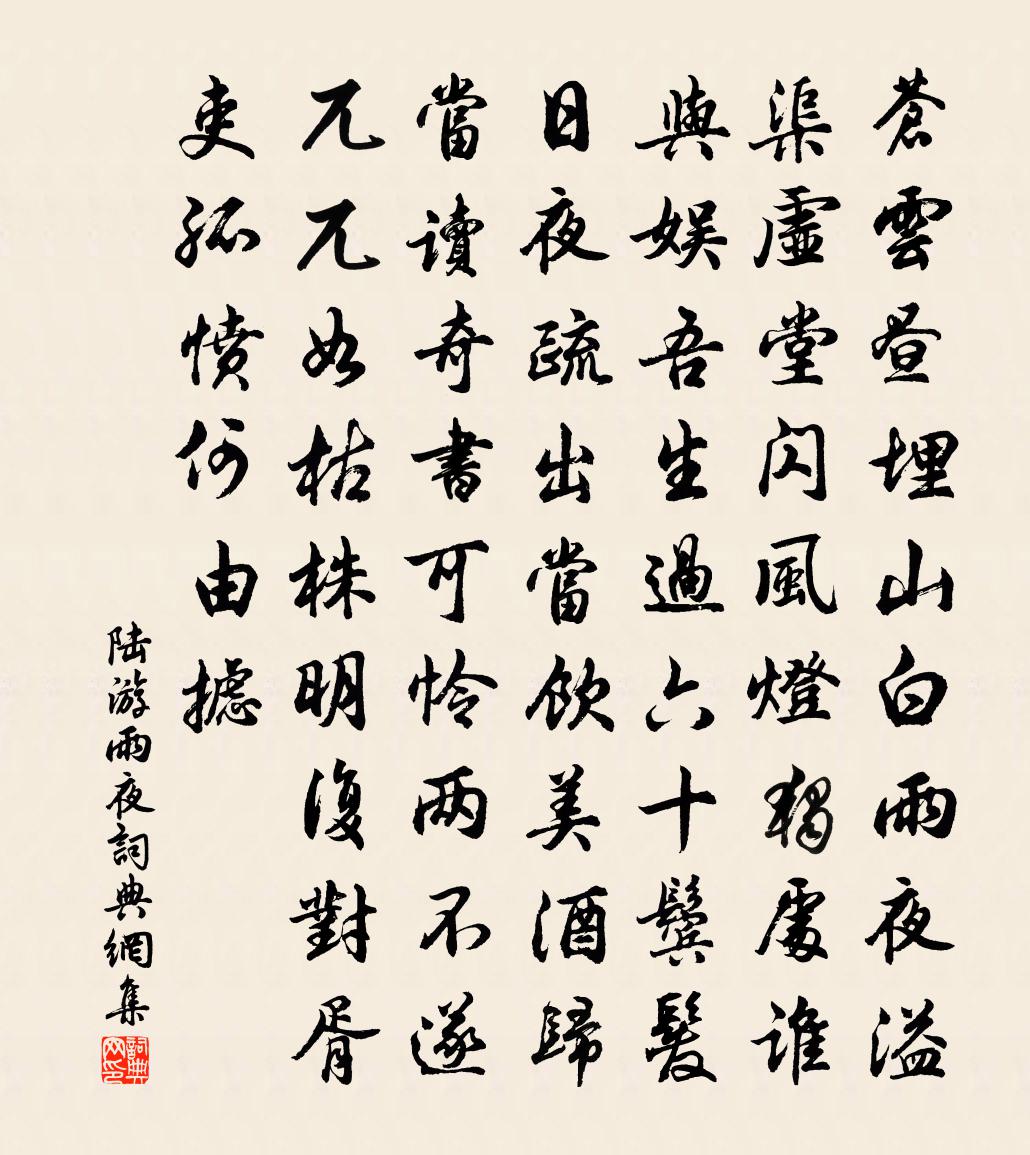 蒼雲晝埋山白雨夜溢
渠虛堂閃風燈獨處誰
與娛吾生過六十鬢髮
日夜疏出當飲美酒歸
當讀奇書可怜兩不遂
兀兀如枯株明復對胥
吏孤憤何由攄
陆游雨夜詞典網集
詞典网印